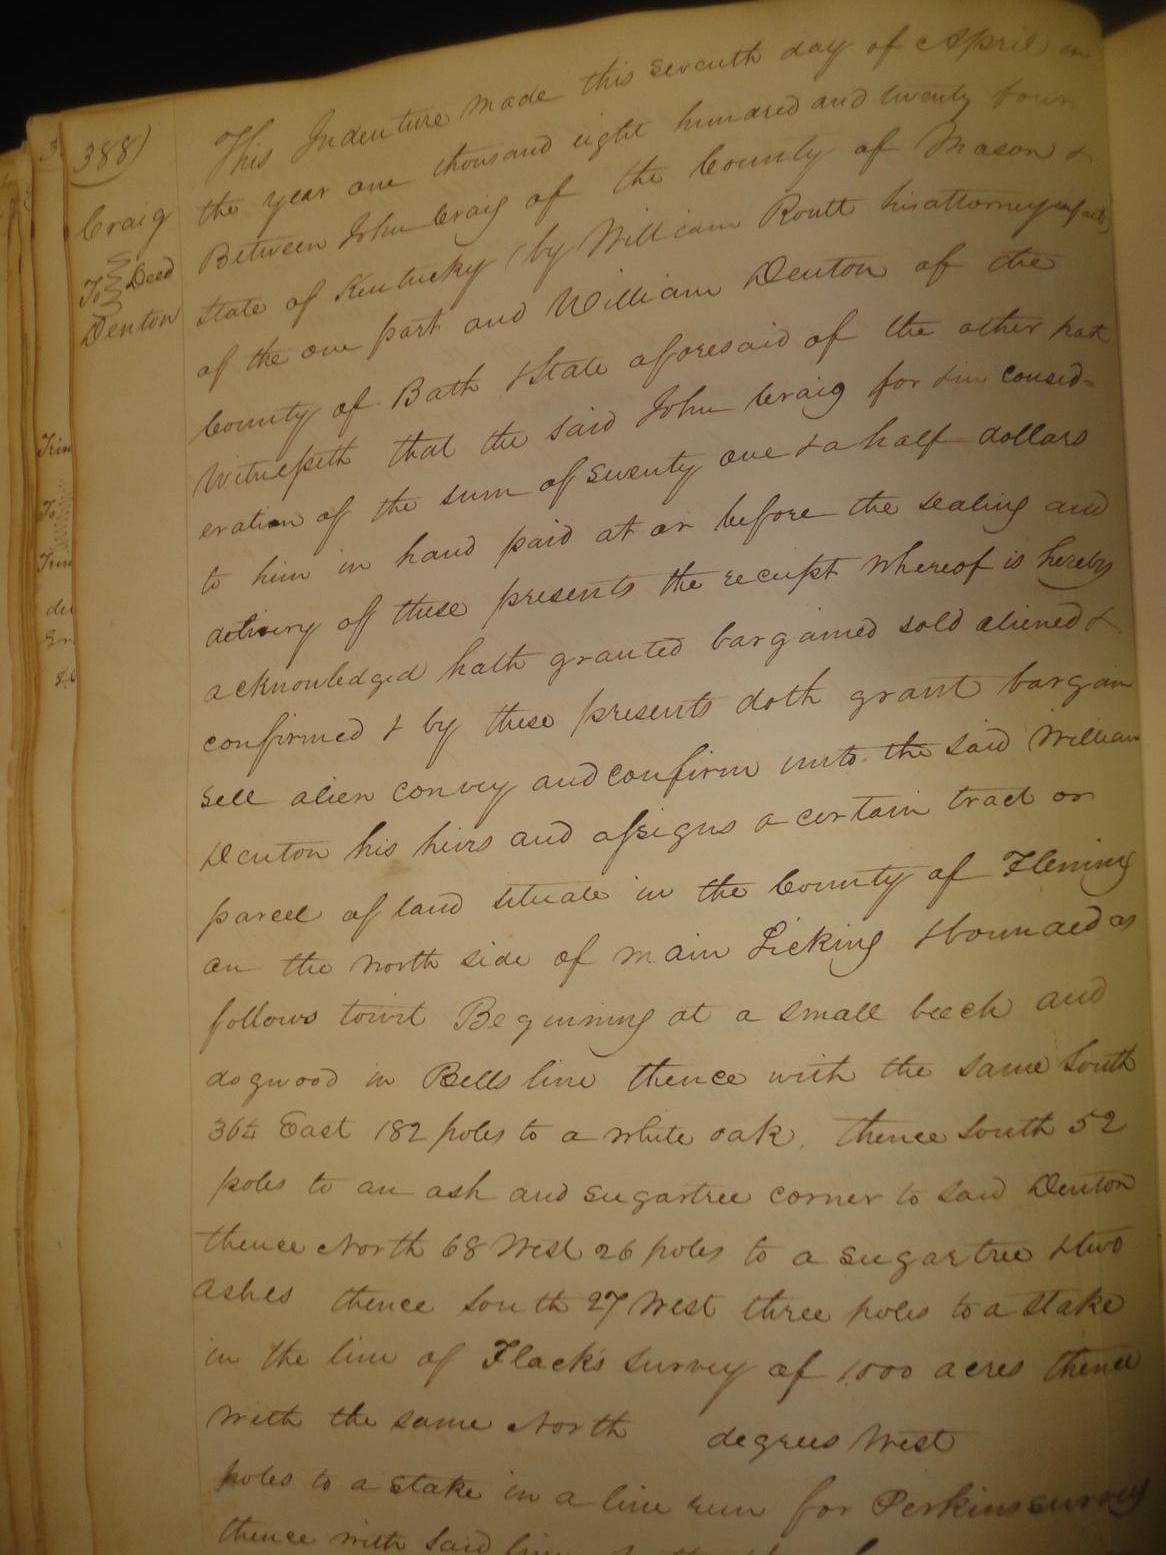 388)
Craig
To Deed
Denton
This Indenture made this seventh day of April in
the year one thousand eight hundred and twenty four
Between John Craig of the County of Mason &
State of Kentucky (by William Routt his attorney in fact)
of the one part and William Denton of the
County of Bath & State aforesaid of the other part
Witnesseth that the said John Craig for & in consid=
eration of the sum of seventy one & a half dollars
to him in hand paid at or before the sealing and
delivery of these presents the receipt whereof is hereby
acknowledged hath granted bargained sold aliened &
confirmed & by these presents doth grant bargain
sell alien convey and confirm unto the said William
Denton his heirs and assigns a certain tract or
parcel of land situate in the County of Fleming
on the north side of main Licking & bounded as
follows towit Beginning at a small beech and
dogwood in Bells line thence with the same South
36½ East 182 poles to a white oak, thence South 52
poles to an ash and sugartree corner to said Denton
thence North 68 West 26 poles to a sugartree & two
ashes thence South 27 West three poles to a stake
in the line of Flack's survey of 1000 acres thence
with the same North degrees West
poles to a stake in a line run for Perkins survey
thence with said line